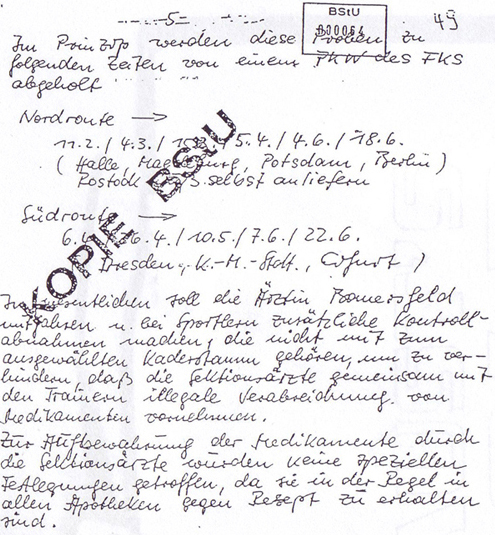 - 5 -
BStU
000064
49
Im Prinzip werden diese Proben zu
folgenden Zeiten von einem PKW des FKS
abgeholt
Nordroute →
11.2. / 4.3. / 5.4. / 4.6. / 18.6.
( Halle, Magdeburg, Potsdam, Berlin )
Rostock selbst anliefern
Südroute →
6.4. / 10.5. / 7.6. / 22.6.
Dresden, K.-M.-Stdt., Erfurt )
KOPIE BStU
Im wesentlichen soll die Ärztin
mitfahren u. bei Sportlern zusätzliche Kontroll-
abnahmen machen, die nicht mit zum
ausgewählten Kaderstamm gehören, um zu ver-
hindern, daß die Sektionsärzte gemeinsam mit
den Trainern illegale Verabreichung von
Medikamenten vornehmen.
Zur Aufbewahrung der Medikamente durch
die Sektionsärzte wurden keine speziellen
Festlegungen getroffen, da sie in der Regel in
allen Apotheken gegen Rezept zu erhalten
sind.